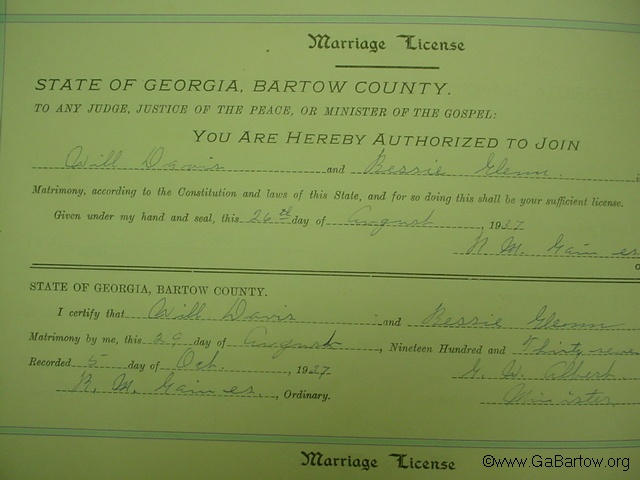 Marriage License
STATE OF GEORGIA, BARTOW COUNTY.
TO ANY JUDGE, JUSTICE OF THE PEACE, OR MINISTER OF THE GOSPEL:
YOU ARE HEREBY AUTHORIZED TO JOIN
Will Davis and Bessie Glenn
Matrimony, according to the Constitution and laws of this State, and for so doing this shall be your sufficient license.
Given under my hand and seal, this 26th day of August, 1937
R. M. Gaines
STATE OF GEORGIA, BARTOW COUNTY.
I certify that Will Davis and Bessie Glenn
Matrimony by me, this 29 day of August, Nineteen Hundred and Thirty seven
Recorded 5 day of Oct., 1937. G. W. Albert
R. M. Gaines, Ordinary. Minister
Marriage License
©www.GaBartow.org